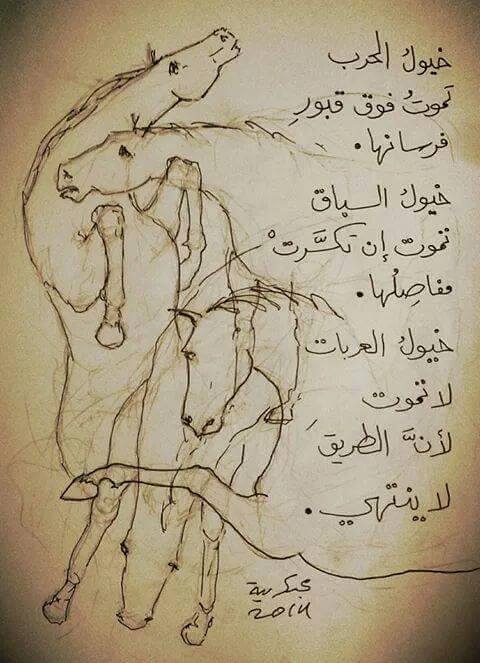 خيولُ الحرب
تموتُ فوق قبورِ
فرسانها.
خيولُ السباق
تموت إن تكسَّرتْ
مفاصِلُها.
خيولُ العربات
لا تموت
لأنَّ الطريقَ
لا ينتهي.
2014